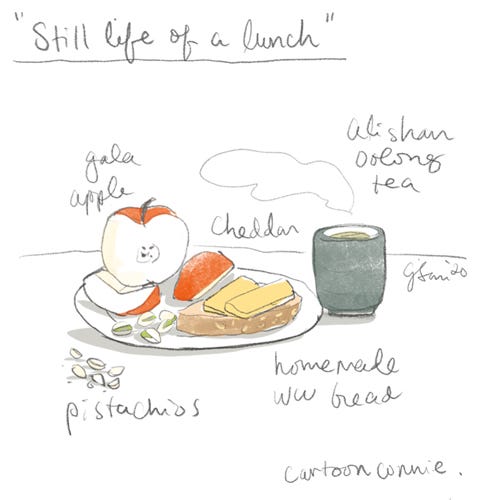 "Still life of a lunch"
alishan
oolong
tea
gala
apple
cheddar
homemade
ww bread
pistachios
cartoonconnie.